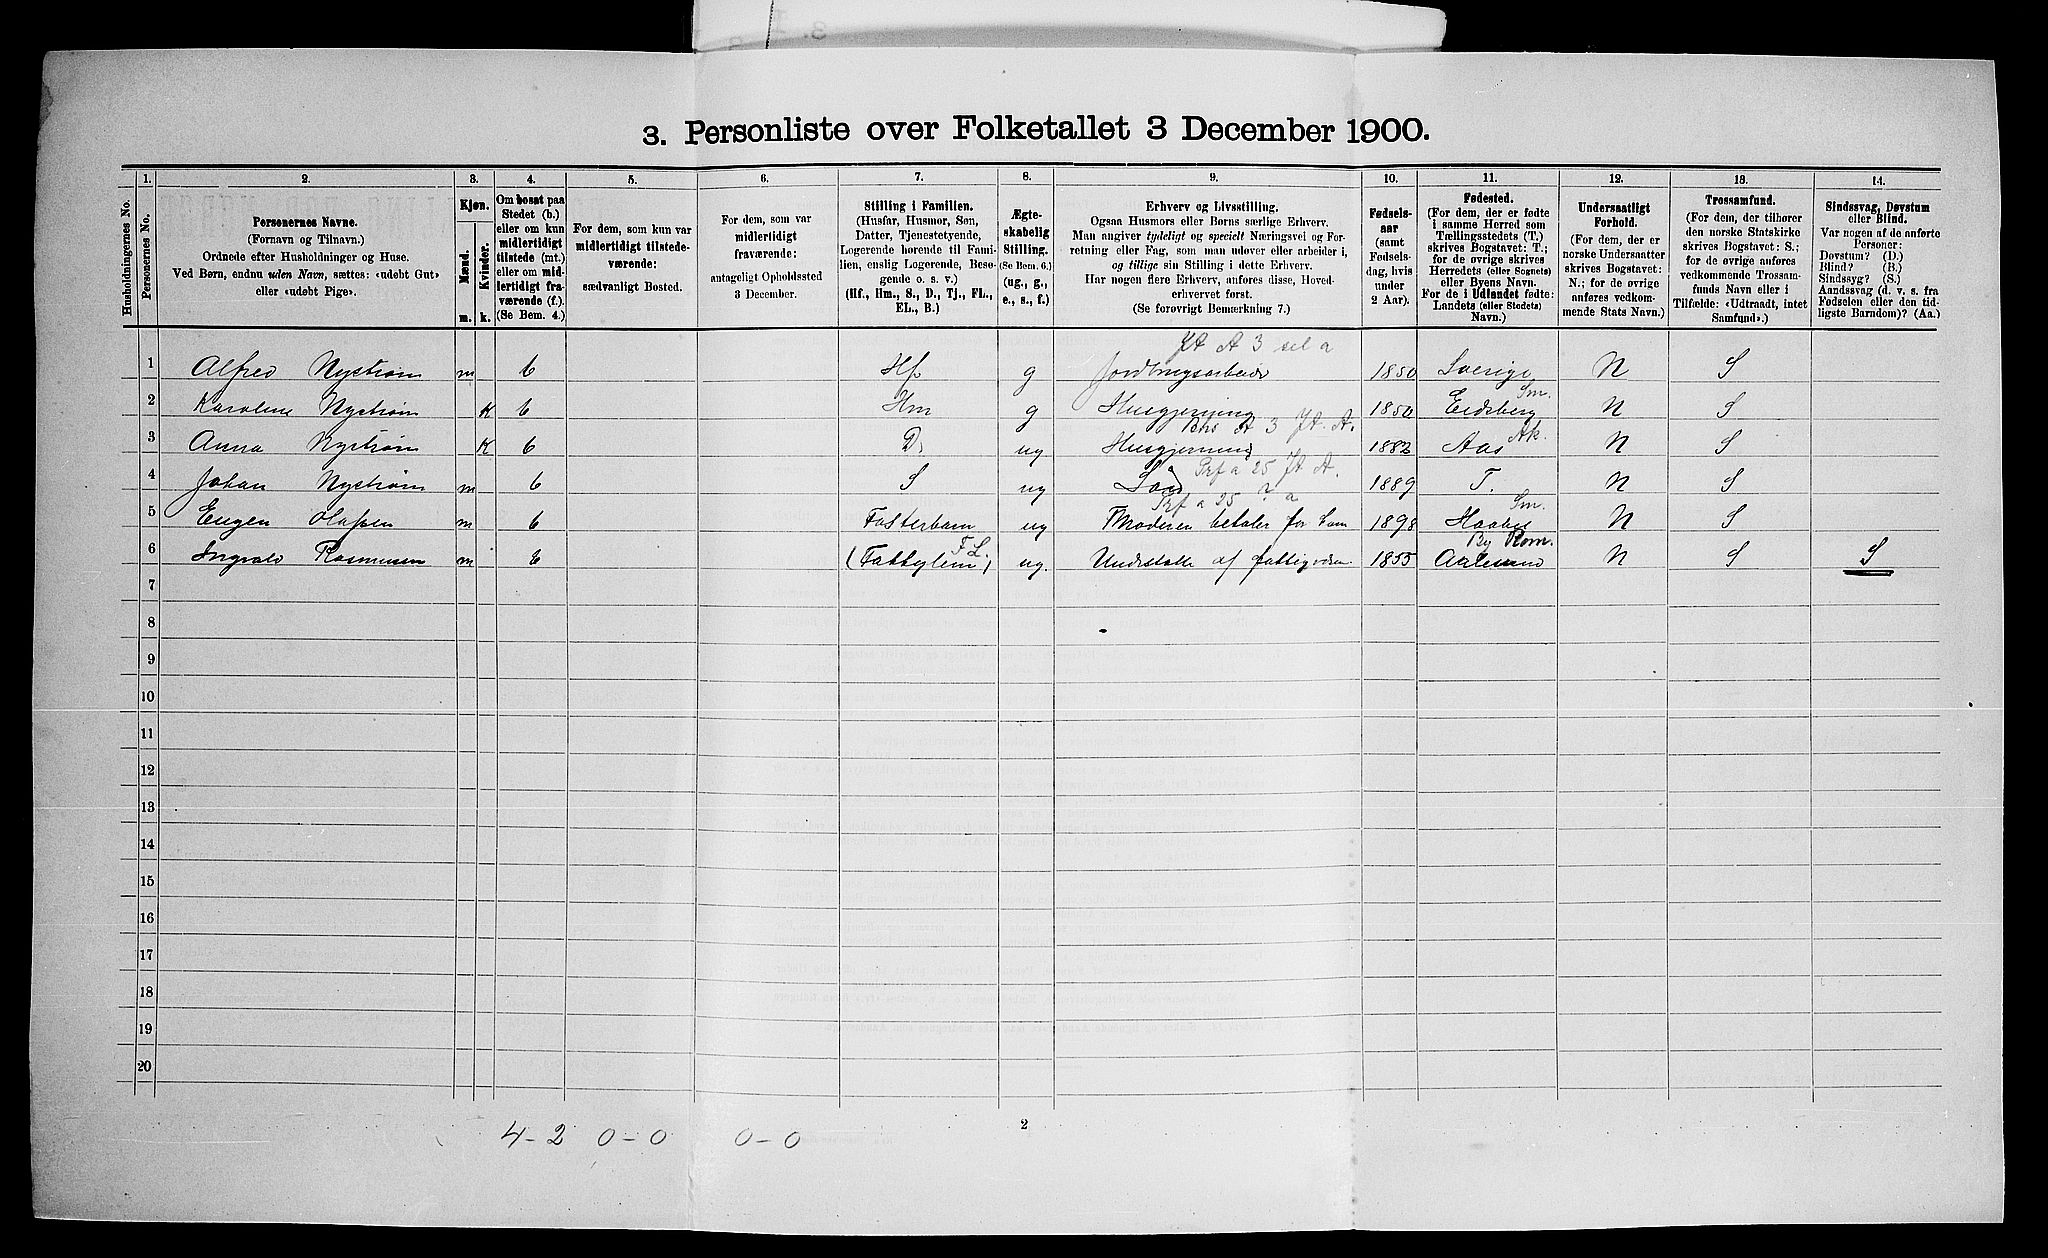 3. Personliste over Folketallet 3 December 1900.
Husholdningernes No.
1.
Personernes No.
2.
Personernes Navne.
(Fornavn og Tilnavn.)
Ordnede efter Husholdninger og Huse.
Ved Børn, endnu uden Navn, sættes: «udøbt Gut»
eller «udøbt Pige».
3.
Kjøn.
Mænd.
Kvinder.
m.
k.
4.
Om bosat paa
Stedet (b.)
eller om kun
midlertidigt
tilstede (mt.)
eller om mid-
lertidigt fra-
værende (f.).
(Se Bem. 4.)
5.
For dem, som kun var
midlertidigt tilstede-
værende:
sædvanligt Bosted.
6.
For dem, som var
midlertidigt
fraværende:
antageligt Opholdssted
3 December.
7.
Stilling i Familien.
(Husfar, Husmor, Søn,
Datter, Tjenestetyende,
Logerende hørende til Fami-
lien, enslig Logerende, Besø-
gende o. s. v.)
(Hf., Hm., S., D., Tj., FL.,
EL., B.)
8.
Ægte-
skabelig
Stilling.
(Se Bem. 6.)
(ug., g.,
e., s., f.)
9.
Erhverv og Livsstilling.
Ogsaa Husmors eller Børns særlige Erhverv.
Man angiver tydeligt og specielt Næringsvei og For-
retning eller Fag, som man udøver eller arbeider i,
og tillige sin Stilling i dette Erhverv.
Har nogen flere Erhverv, anføres disse, Hoved-
erhvervet først.
(Se forøvrigt Bemærkning 7.)
10.
Fødsels-
aar
(samt
Fødsels-
dag, hvis
under
2 Aar).
11.
Fødested.
(For dem, der er fødte
i samme Herred som
Tællingsstedets (T.),
skrives Bogstavet: T.;
for de øvrige skrives
Herredets (eller Sognets)
eller Byens Navn.
For de i Udlandet fødte:
Landets (eller Stedets)
Navn.)
12.
Undersaatligt
Forhold.
(For dem, der er
norske Undersaatter
skrives Bogstavet:
N.; for de øvrige
anføres vedkom-
mende Stats Navn.)
13.
Trossamfund.
(For dem, der tilhører
den norske Statskirke
skrives Bogstavet: S.;
for de øvrige anføres
vedkommende Trossam-
funds Navn eller i
Tilfælde: «Udtraadt, intet
Samfund».)
14.
Sindssvag, Døvstum
eller Blind.
Var nogen af de anførte
Personer:
Døvstum? (D.)
Blind? (B.)
Sindssyg? (S.)
Aandssvag (d. v. s. fra
Fødselen eller den tid-
ligste Barndom)? (Aa.)
Jt A 3 sel a
1 Alfred Nystrøm m b Hf g Jordbrugsarbeide 1850 Sverige N S
Sm.
2 Karoline Nystrøm K b Hm g Husgjerning 1850 Eidsberg N S
A 3 Jt. A.
Ak.
3 Anna Nystrøm K b D. ug Husgjerning 1882 Aas N S
Prf a 25 Jt A.
4 Johan Nystrøm m b S ug 1889 T. N S
Prf a 25 ? a
Sm.
5 Eugen Olafsen m b Fosterbarn ug Moderen betaler for ham 1898 Haabøl N S
F L.
By Rom.
6 Ingvald Rasmussen m b (Fattiglem) ug. Understøtte af fattigvæsen 1855 Aalesund N S S
7
8
9
10
11
12
13
14
15
16
17
18
19
20
4-2 0-0 0-0
2